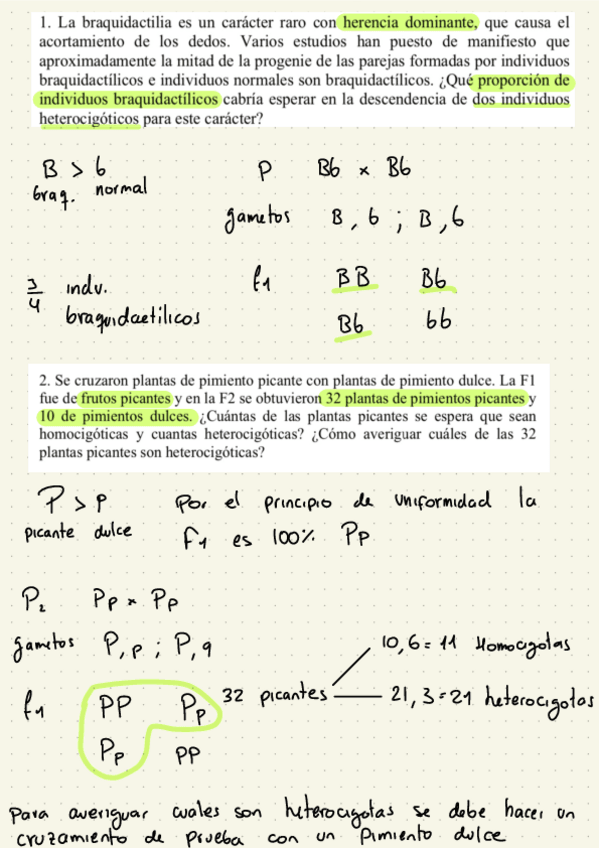 1. La braquidactilia es un carácter raro con herencia dominante, que causa el
acortamiento de los dedos. Varios estudios han puesto de manifiesto que
aproximadamente la mitad de la progenie de las parejas formadas por individuos
braquidactílicos e individuos normales son braquidactílicos. ¿Qué proporción de
individuos braquidactílicos cabría esperar en la descendencia de dos individuos
heterocigóticos para este carácter?
B > b
braq. normal
P Bb × Bb
gametos B, b ; B, b
f1 BB Bb
Bb bb
3/4 indv.
braquidactilicos
2. Se cruzaron plantas de pimiento picante con plantas de pimiento dulce. La F1
fue de frutos picantes y en la F2 se obtuvieron 32 plantas de pimientos picantes y
10 de pimientos dulces. ¿Cuántas de las plantas picantes se espera que sean
homocigóticas y cuantas heterocigóticas? ¿Cómo averiguar cuáles de las 32
plantas picantes son heterocigóticas?
P > p
picante dulce
Por el principio de uniformidad la
F1 es 100% Pp
P2 Pp × Pp
gametos P, p ; P, q
f1 PP Pp
Pp PP
32 picantes
10,6 = 11 Homocigotas
21,3 = 21 heterocigotos
Para averiguar cuales son heterocigotas se debe hacer un
cruzamiento de prueba con un Pimiento dulce